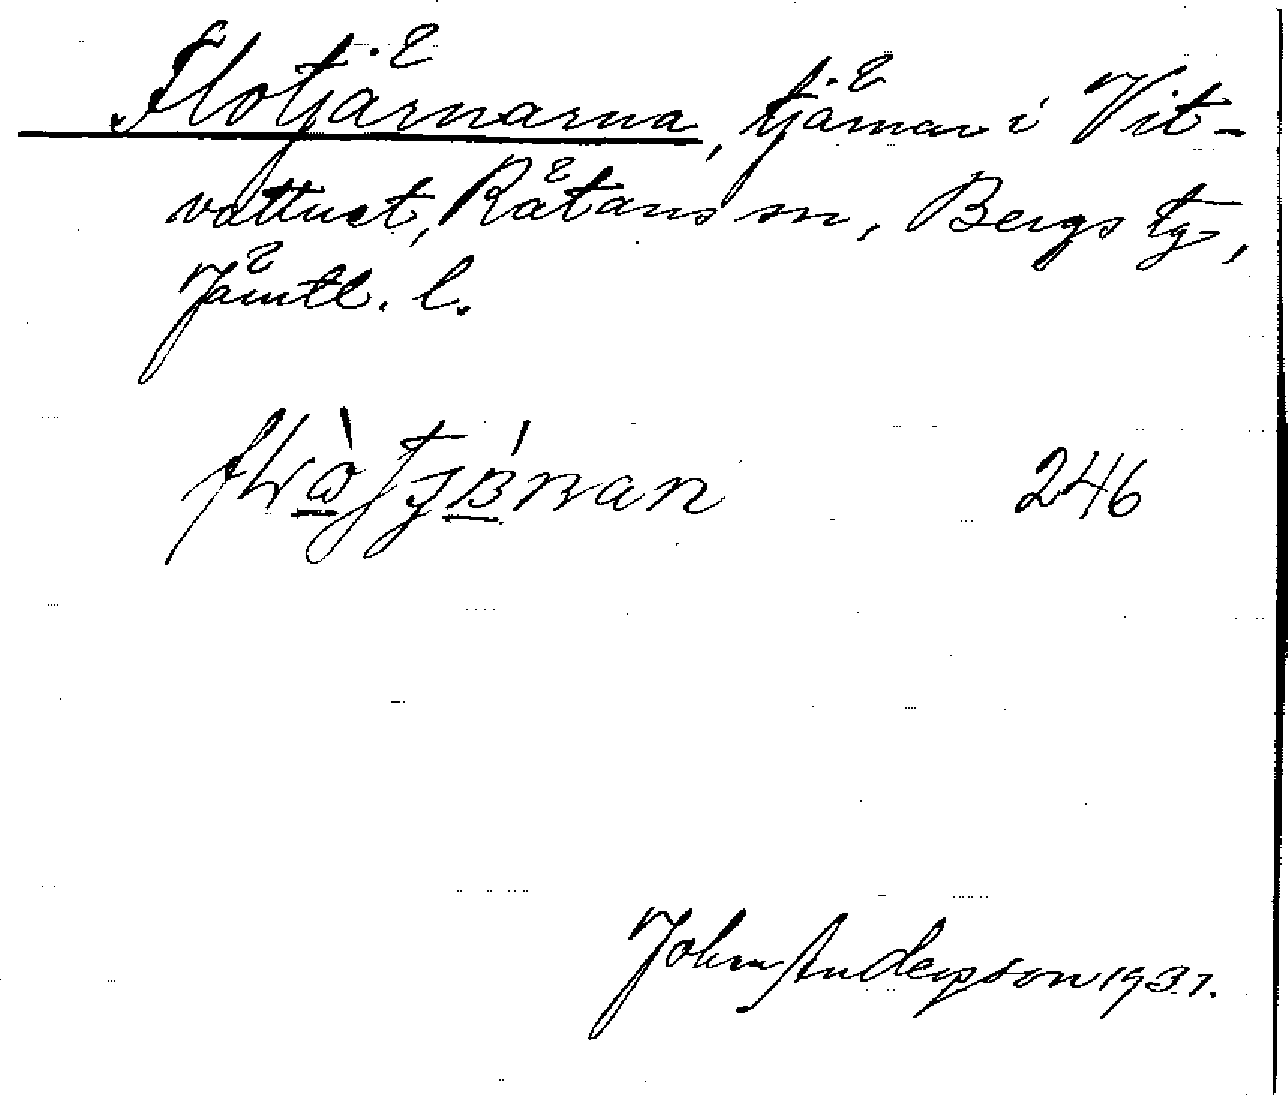 Flotjärnarna, tjärnar i Vit-
vattnet, Rätans sn, Bergs tg,
Jämtl. l.
246
John Anderson 1931.